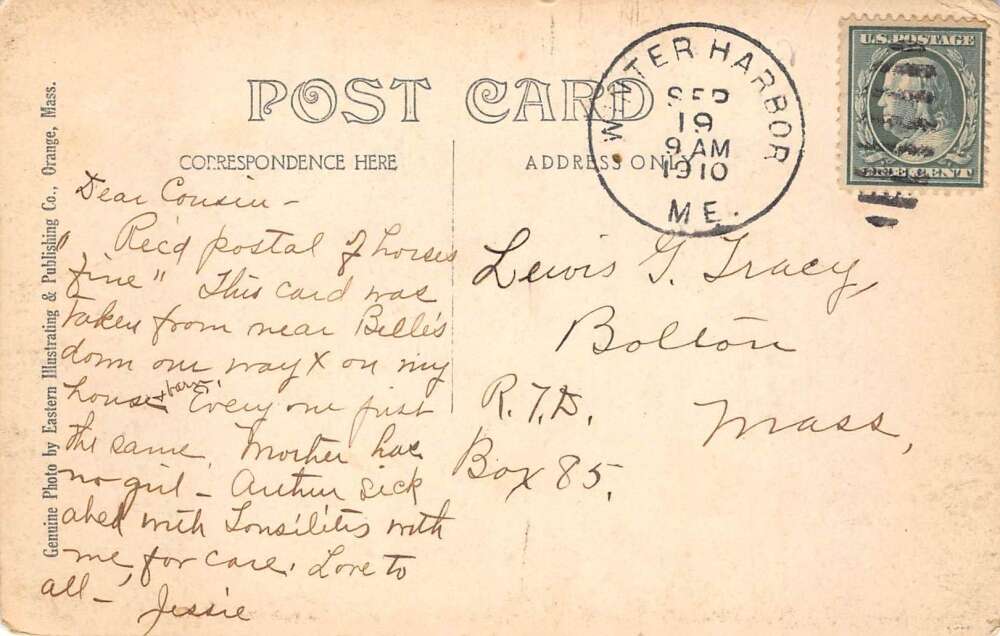 POST CARD
CORRESPONDENCE HERE
ADDRESS ONLY
WINTER HARBOR
SEP
19
9 AM
1910
ME.
U.S. POSTAGE
ONE CENT
Genuine Photo by Eastern Illustrating & Publishing Co., Orange, Mass.
Dear Cousin -
Rec'd postal of horses
"fine" This card was
taken from near Belle's
down our way X on my
house + barn. Every one just
the same. Mother has
no girl - Arthur sick
abed with Tonsilitis with
me, for care. Love to
all - Jessie
Lewis G. Tracy,
Bolton
R.F.D. Mass,
Box 85.